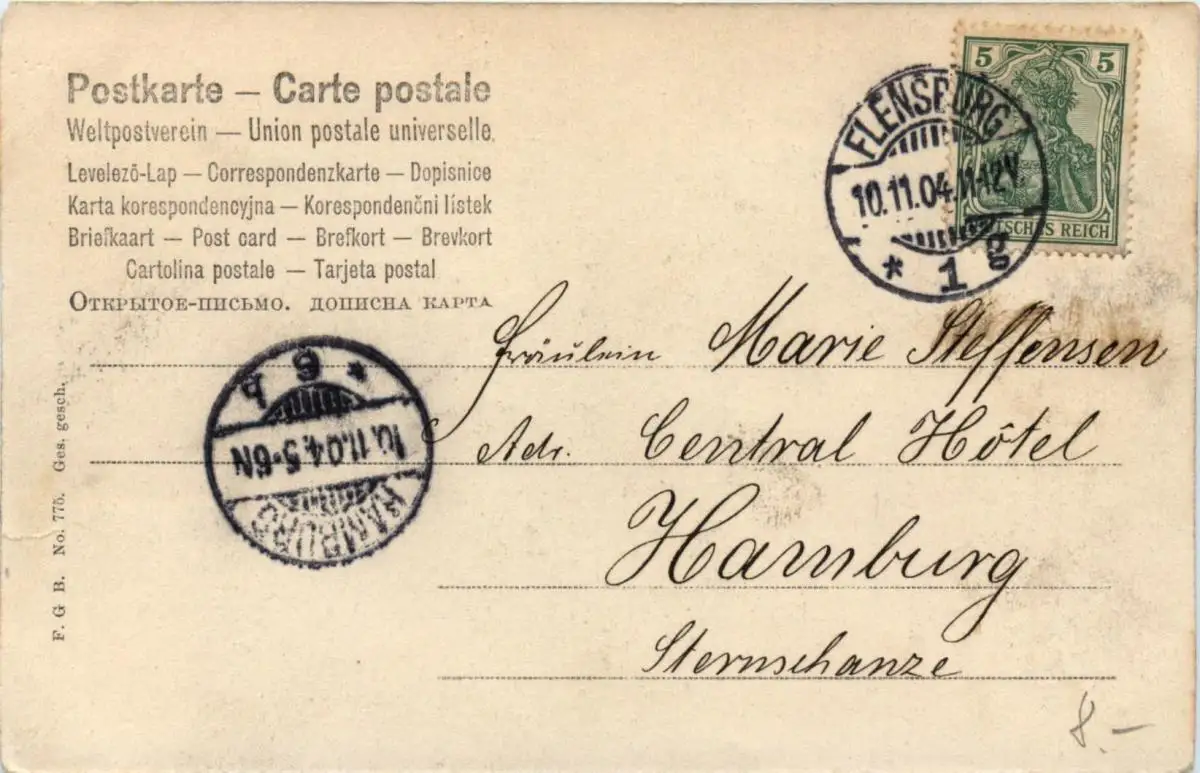 Postkarte — Carte postale
Weltpostverein — Union postale universelle.
Levelező-Lap — Correspondenzkarte — Dopisnice
Karta korespondencyjna — Korespondenčni lístek
Briefkaart — Post card — Brefkort — Brevkort
Cartolina postale — Tarjeta postal
Открытое-письмо. дописна карта
5 5
DEUTSCHES REICH
FLENSBURG
10.11.04.11-12V
* 1 g
Fräulein Marie Steffensen
Adr. Central Hôtel
Hamburg
Sternschanze
HAMBURG
10.11.04.5-6N
* 6 b
F. G. B. No. 775. Ges. gesch.
8.–